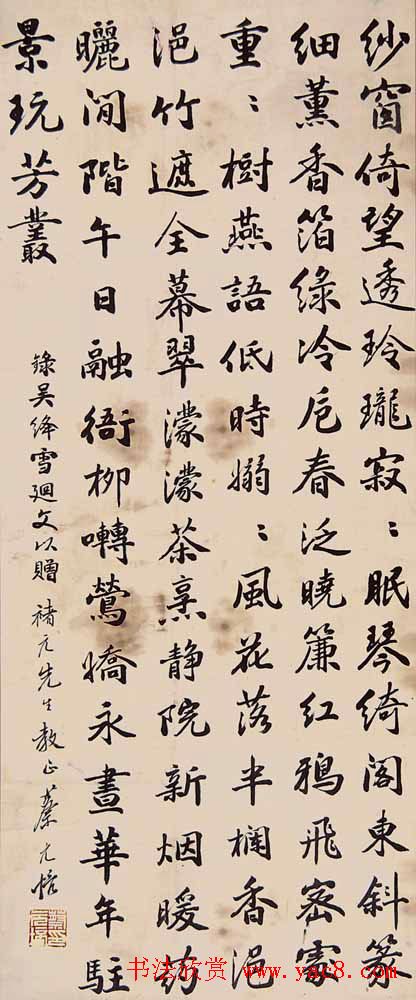 紗窗倚望透玲瓏寂〻眠琴綺閣東斜篆
細薰香箔綠冷卮春泛曉簾紅鴉飛密靄
重〻樹燕語低時嫋〻風花落半欄香浥
浥竹遮全幕翠濛濛茶烹靜院新烟暖葯
曬閒階午日融衙柳囀鶯嬌永晝華年駐
景玩芳叢
錄吴絳雪廻文以贈 先生教正 蔡
书法欣赏 www.yac8.com